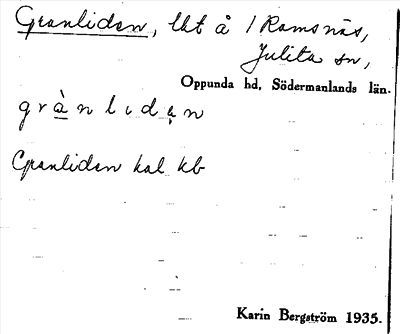 Granliden, lht å 1 Ramsnäs,
Julita sn,
Oppunda hd, Södermanlands län.
grànlidạn
Granliden hal kb
Karin Bergström 1935.